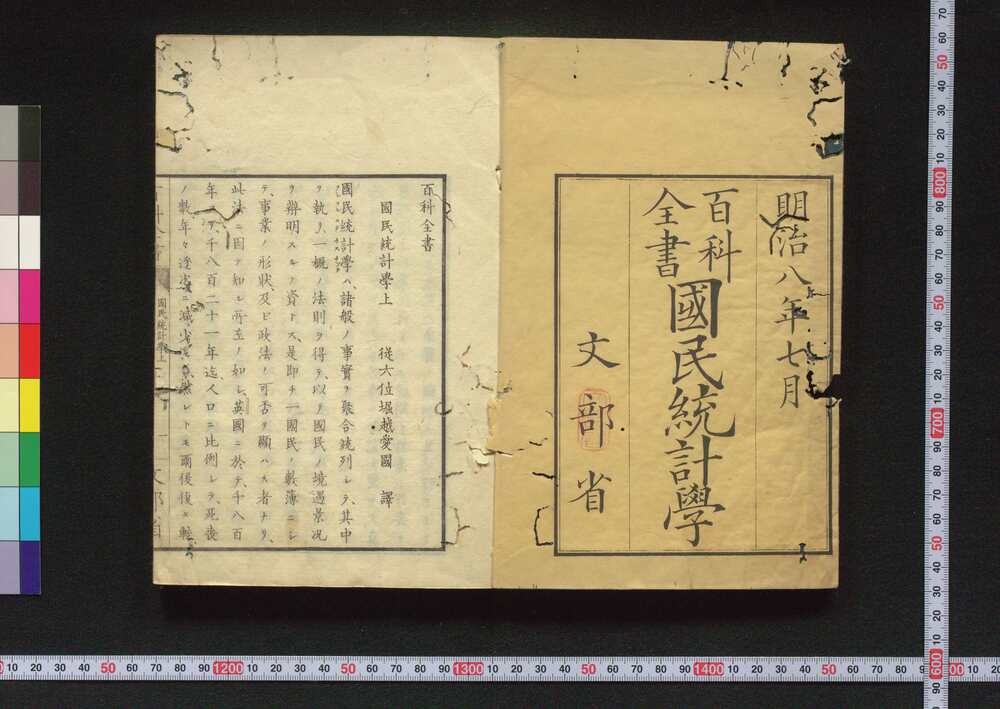 明治八年七月
百科全書
國民統計學
文部省
百科全書
國民統計學上 從六位堀越愛國 譯
國民統計學ハ、諸般ノ事實ヲ聚合銃列シテ、其中
ヲ執リ、一概ノ法則ヲ得テ、以テ國民ノ境遇景况
ヲ辨明スルノ資トス、是即チ一國民ノ數簿ニシ
テ、事業ノ形狀、及ビ政法ノ可否ヲ顯ハス者ナリ、
此法ニ因テ知ル所至ノ如シ、英國ニ於テ、千八百
年ヨリ、千八百二十一年迄、人口ニ比例シテ、死喪
ノ數年々逐次ニ減少 然レトモ爾後復タ軽
國民統計學上
一
文部省
10 20 30 40 50 60 70 80 90 1200 10 20 30 40 50 60 70 80 90 1300 10 20 30 40 50 60 70 80 90 1400 10 20 30 40 50 60 70 80 90
70 60 50 40 30 20 10 800 90 80 70 60 50 40 30 20 10 700 90 80 70 60 50 40 30 20 10 600 90